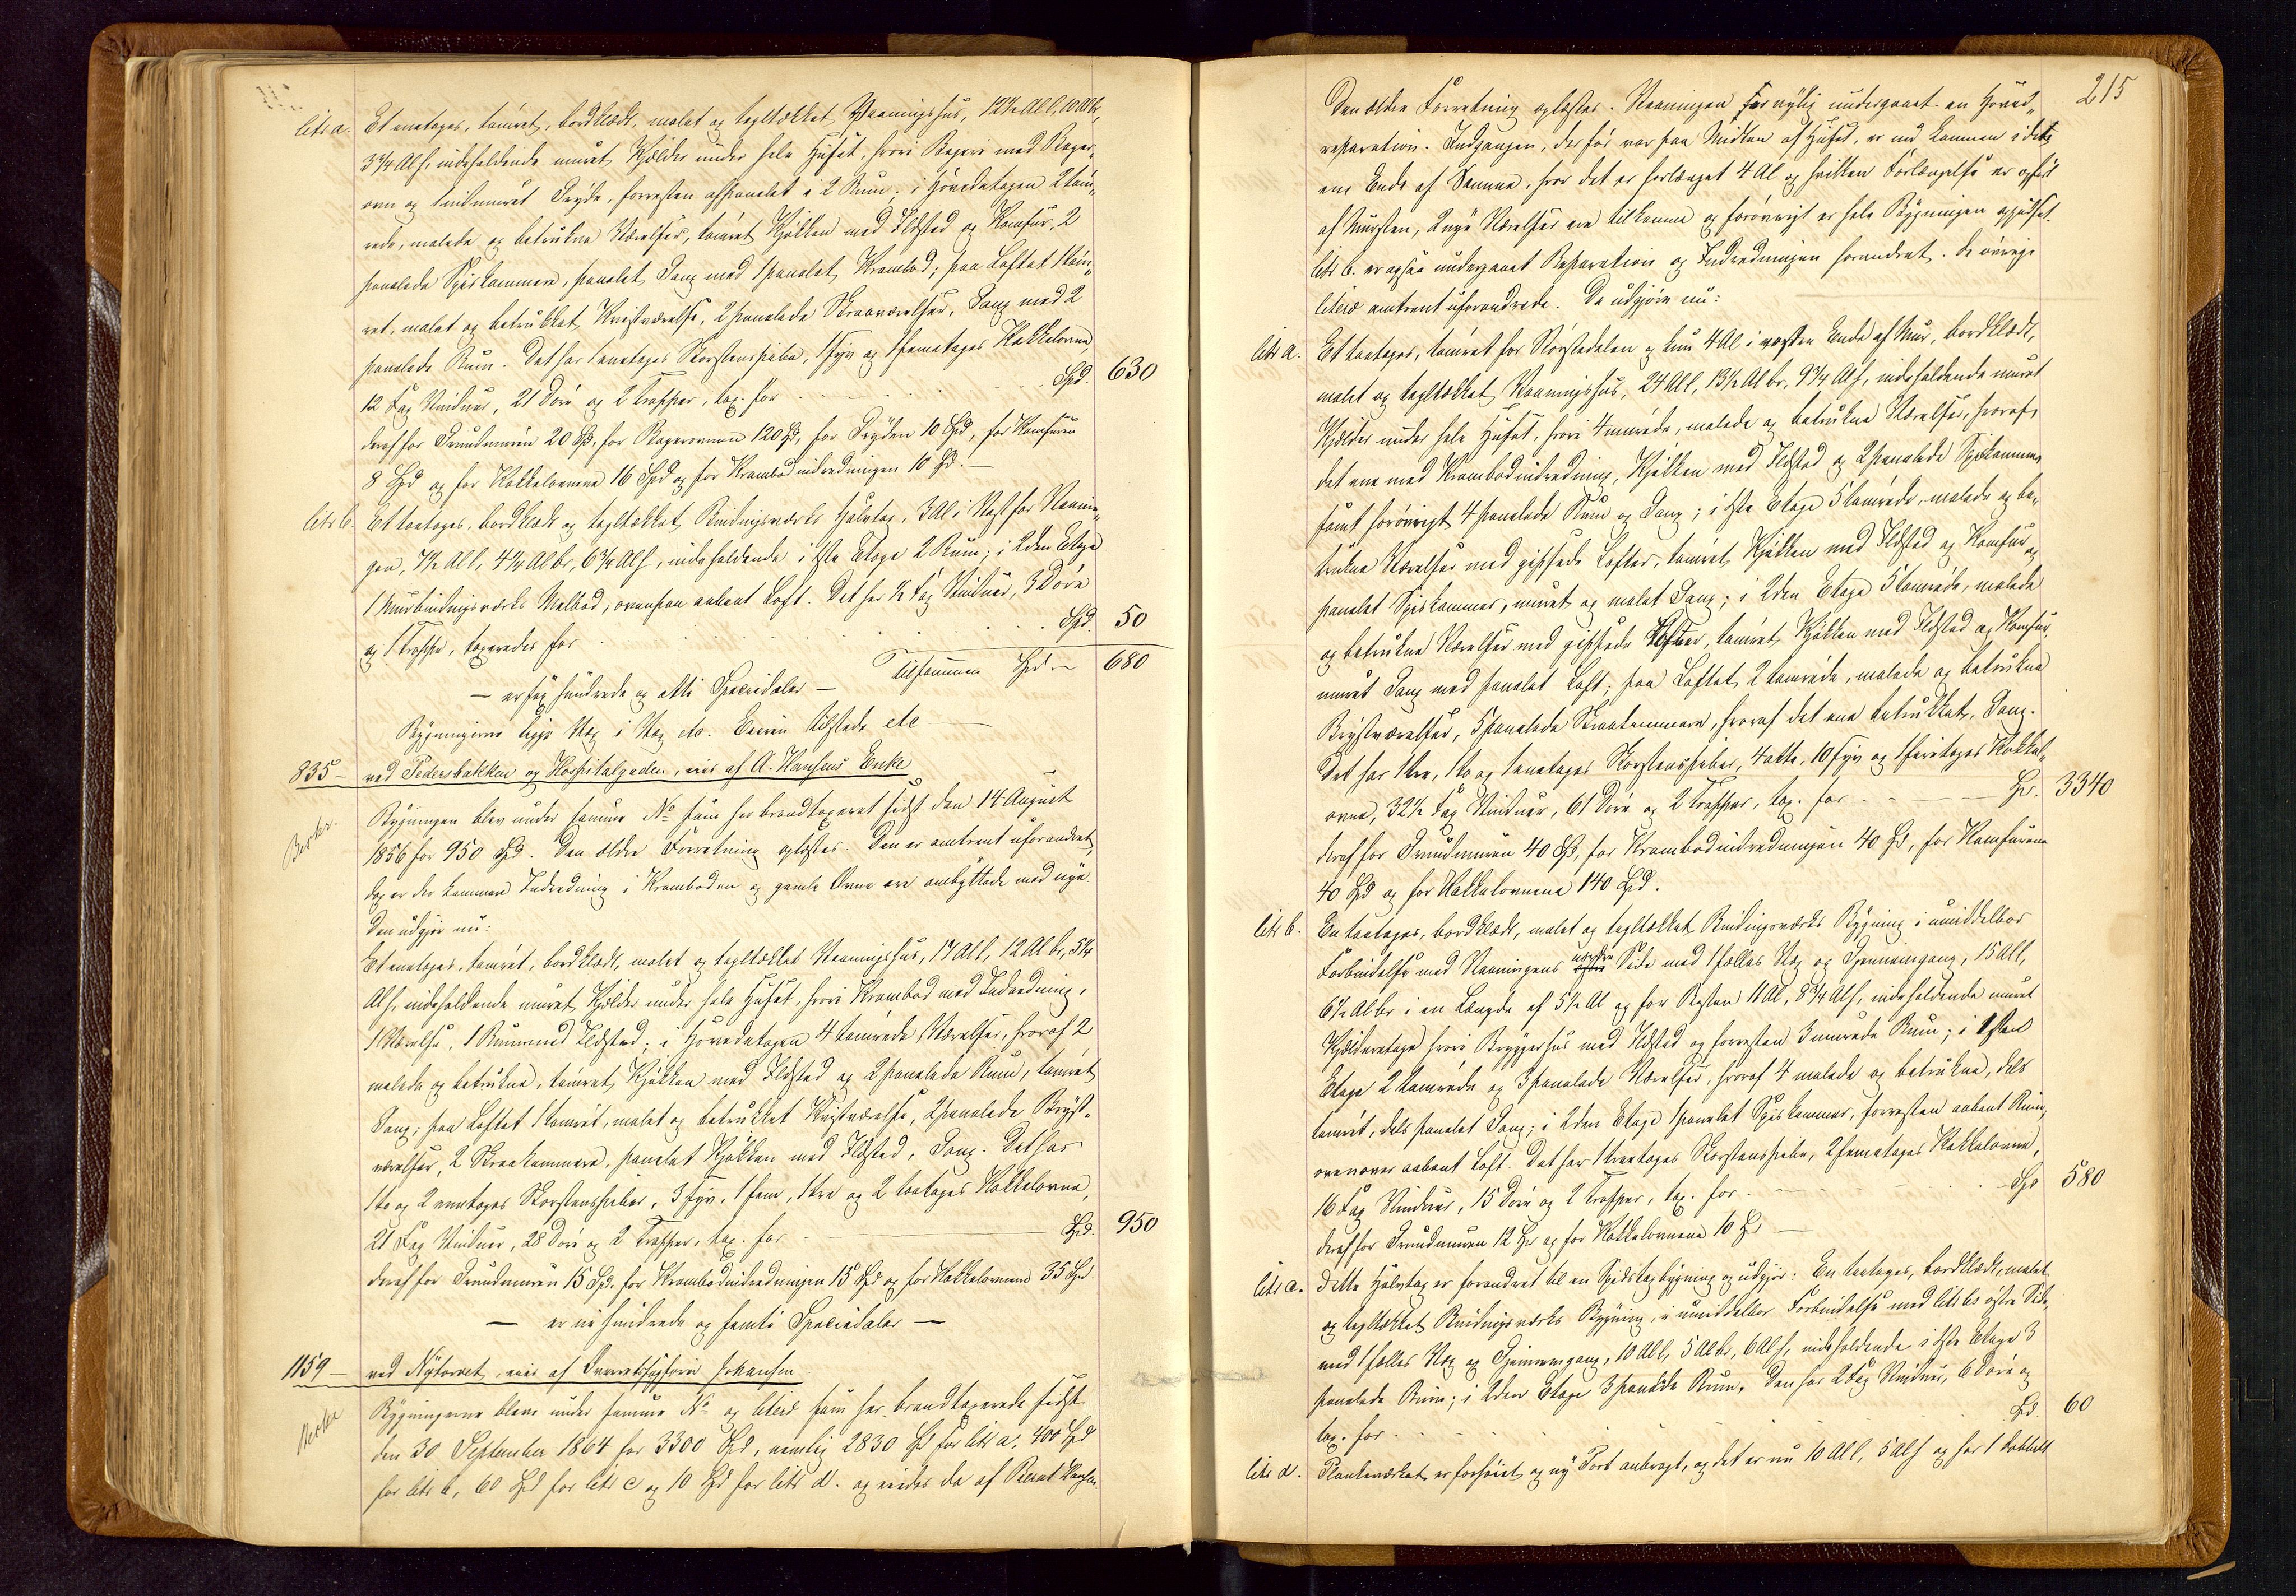 litr a. Et enetages, tømret, bordklædt, malet og tegltækket Vaaningshus, 12½ Al l, 10 Al br,
3¾ Al h, indeholdende muret Kjelder under hele Huset, hvori Bageri med Bager-
ovn og indmuret Gryde, forresten afpanelet i 2 Rum; i Hovedetagen 2 tøm-
rede, malede og betrukne Værelser, tømret Kjøkken med Ildsted og Komfur, 2
panelede Spiskammere, panelet Gang med 1 panelet Krambod; paa Loftet 1 tøm-
ret, malet og betrukket Kvistværelse, 2 panelede Skraaværelser, Gang med 2
panelede Rum. Det har 1 enetages Skorstenspibe, 1 fyr og 1 femetages Kakkelovne,
12 Fag Vinduer, 21 Døre og 2 Trapper, tax. for Spd. 630
deraf for Grundmuren 20 Spd, for Bagerovnen 120 Spd, for Gryden 10 Spd, for Komfuren
8 Spd og for Kakkelovnene 16 Spd og for Krambodindredningen 10 Spd.
litr b. Et toetages, bordklædt og tegltækket Bindingsværks Halvtag, 3 Al i Vest for Vaanin-
gen, 7½ Al l, 4¼ Al br, 6¾ Al h, indeholdende i 1ste Etage 2 Rum; i 2den Etage
1 Murbindingsværks Melbod, ovenpaa aabent Loft. Det har ½ Fag Vinduer, 3 Døre
og 1 Trappe, taxeredes for Spd. 50
– er sex hundrede og otti Speciedaler – Tilsammen Spd. 680
Bygningerne ligge Væg i Væg etc. Eieren tilstede etc
835 – ved Pedersbakken og Hospitalgaden, eies af A. Hansens Enke
Beskr. Bygningen blev under samme No som her brandtaxeret sidst den 14 August
1856 for 950 Spd. Den ældre Forretning oplæstes. Den er omtrent uforandret,
dog er der kommen Indredning i Kramboden og gamle Ovne ere ombyttede med nye.
Den udgjør nu:
Et enetages, tømret, bordklædt, malet og tegltækket Vaaningshus, 17 Al l, 12 Al br, 5¼
Al h, indeholdende muret Kjelder under hele Huset, hvori Krambod med Indredning,
1 Værelse, 1 Rum med Ildsted; i Hovedetagen 4 tømrede Værelser, hvoraf 2
malede og betrukne, tømret Kjøkken med Ildsted og 2 panelede Rum, tømret
Gang; paa Loftet 1 tømret, malet og betrukket Kvistværelse, 2 panelede Bryst-
værelser, 2 Skraakammere, panelet Kjøkken med Ildsted, Gang. Det har
1 to og 2 enetages Skorstenspiber, 3 fyr, 1 fem, 1 tre og 2 toetages Kakkelovne,
21 Fag Vinduer, 28 Døre og 2 Trapper, tax. for Spd. 950
deraf for Grundmuren 15 Spd. for Krambodindredningen 15 Spd og for Kakkelovnene 35 Spd.
– er ni hundrede og femti Speciedaler –
1159 – ved Nytorvet, eies af Johansen
Beskr Bygningerne bleve under samme No og litera som her brandtaxerede sidst
den 30 September 1864 for 3300 Spd, nemlig 2830 Spd for litr a, 400 Spd
for litr b, 60 Spd for litr c og 10 Spd for litr d. og eiedes da af Hansen.
215
Den ældre Forretning oplæstes. Vaaningen har nylig undergaaet en Hoved-
reparation. Indgangen, der før var paa Midten af Huset, er nu kommen i dets
ene Ende af Samme, hvor det er forlænget 4 Al og hvilken Forlængelse er opført
af Mursten, 2 nye Værelser ere tilkomne og forøvrigt er hele Bygningen oppudset.
litr b. er ogsaa undergaaet Reparation og Indredningen forandret. De øvrige
litera omtrent uforandrede. De udgjøre nu:
litr a. Et toetages, tømret for Størstedelen og kun 4 Al i vestre Ende af Mur, bordklædt,
malet og tegltækket Vaaningshus, 24 Al l, 13½ Al br, 9¾ Al h, indeholdende muret
Kjelder under hele Huset, hvori 4 murede, malede og betrukne Værelser, hvoraf
det ene med Krambodindredning, Kjøkken med Ildsted og 2 panelede Spiskammere
samt forøvrigt 4 panelede Rum og Gang; i 1ste Etage 5 tømrede, malede og be-
trukne Værelser med gipsede Lofter, tømret Kjøkken med Ildsted og Komfur og
panelet Spiskammer, muret og malet Gang; i 2den Etage 5 tømrede, malede
og betrukne Værelser med gipsede Lofter, tømret Kjøkken med Ildsted og Komfur,
muret Gang med panelet Loft; paa Loftet 2 tømrede, malede og betrukne
Brystværelser, 5 panelede Skraakammere, hvoraf det ene betrukket, Gang.
Det har 1 tre, 1 to og 1 enetages Skorstenspiber, 4 otte, 10 fyr og 1 firetages Kakkel-
ovne, 32½ Fag Vinduer, 61 Døre og 2 Trapper, tax. for Spd. 3340
deraf for Grundmuren 40 Spd, for Krambodindredningen 40 Spd, for Komfurene
40 Spd og for Kakkelovnene 140 Spd.
litr b. En toetages, bordklædt, malet og tegltækket Bindingsværks Bygning i umiddelbar
Forbindelse med Vaaningens nordre Side med 1 fælles Væg og Gjennemgang, 15 Al l,
6½ Al br i en Længde af 5½ Al og for Resten 11 Al, 8¾ Al h, indeholdende muret
Kjelderetage hvori Bryggerhus med Ildsted og forresten 3 murede Rum; i 1ste
Etage 2 tømrede og 3 panelede Værelser, hvoraf 4 malede og betrukne, dels
tømret, dels panelet Gang; i 2den Etage 1 panelet Spiskammer, forresten aabent Rum,
ovenover aabent Loft. Det har 1 treetages Skorstenspibe, 2 femetages Kakkelovne,
16 Fag Vinduer, 15 Døre og 2 Trapper, tax. for Spd 580
deraf for Grundmuren 12 Spd og for Kakkelovnene 10 Spd
litr c. Dette Halvtag er forandret til en Spidstagbygning og udgjør: En toetages, bordklædt, malet
og tegltækket Bindingsværks Bygning, i umiddelbar Forbindelse med litr bs østre Side,
med 1 fælles Væg og Gjennemgang, 10 Al l, 5 Al br, 6 Al h, indeholdende i 1ste Etage 3
panelede Rum; i 2den Etage 3 panelede Rum. Den har 2 Fag Vinduer, 6 Døre og
tax. for Spd. 60
litr d. Plankeværket er forhøiet og ny Port anbragt, og det er nu 10 Al l, 5 Al h og har 1 dobbelt